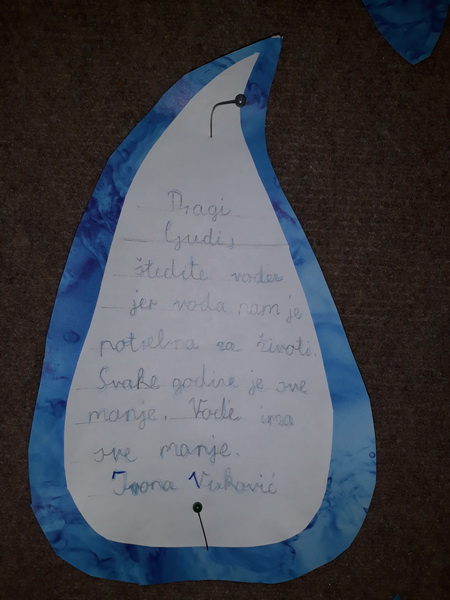 Dragi
ljudi,
štedite vodu
jer voda nam je
potrebna za život.
Svake godine je sve
manje. Vode ima
sve manje.
Ivona Vuković